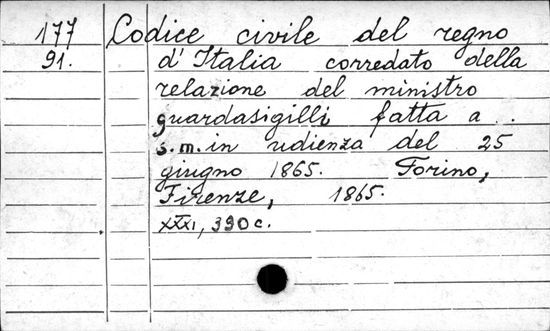 177 Codice civile del regno
91. d'Italia corredato della
relazione del ministro
guardasigilli fatta a..
s.m. in udienza del 25
giugno 1865. Torino,
Firenze, 1865.
XXXI, 390 c.